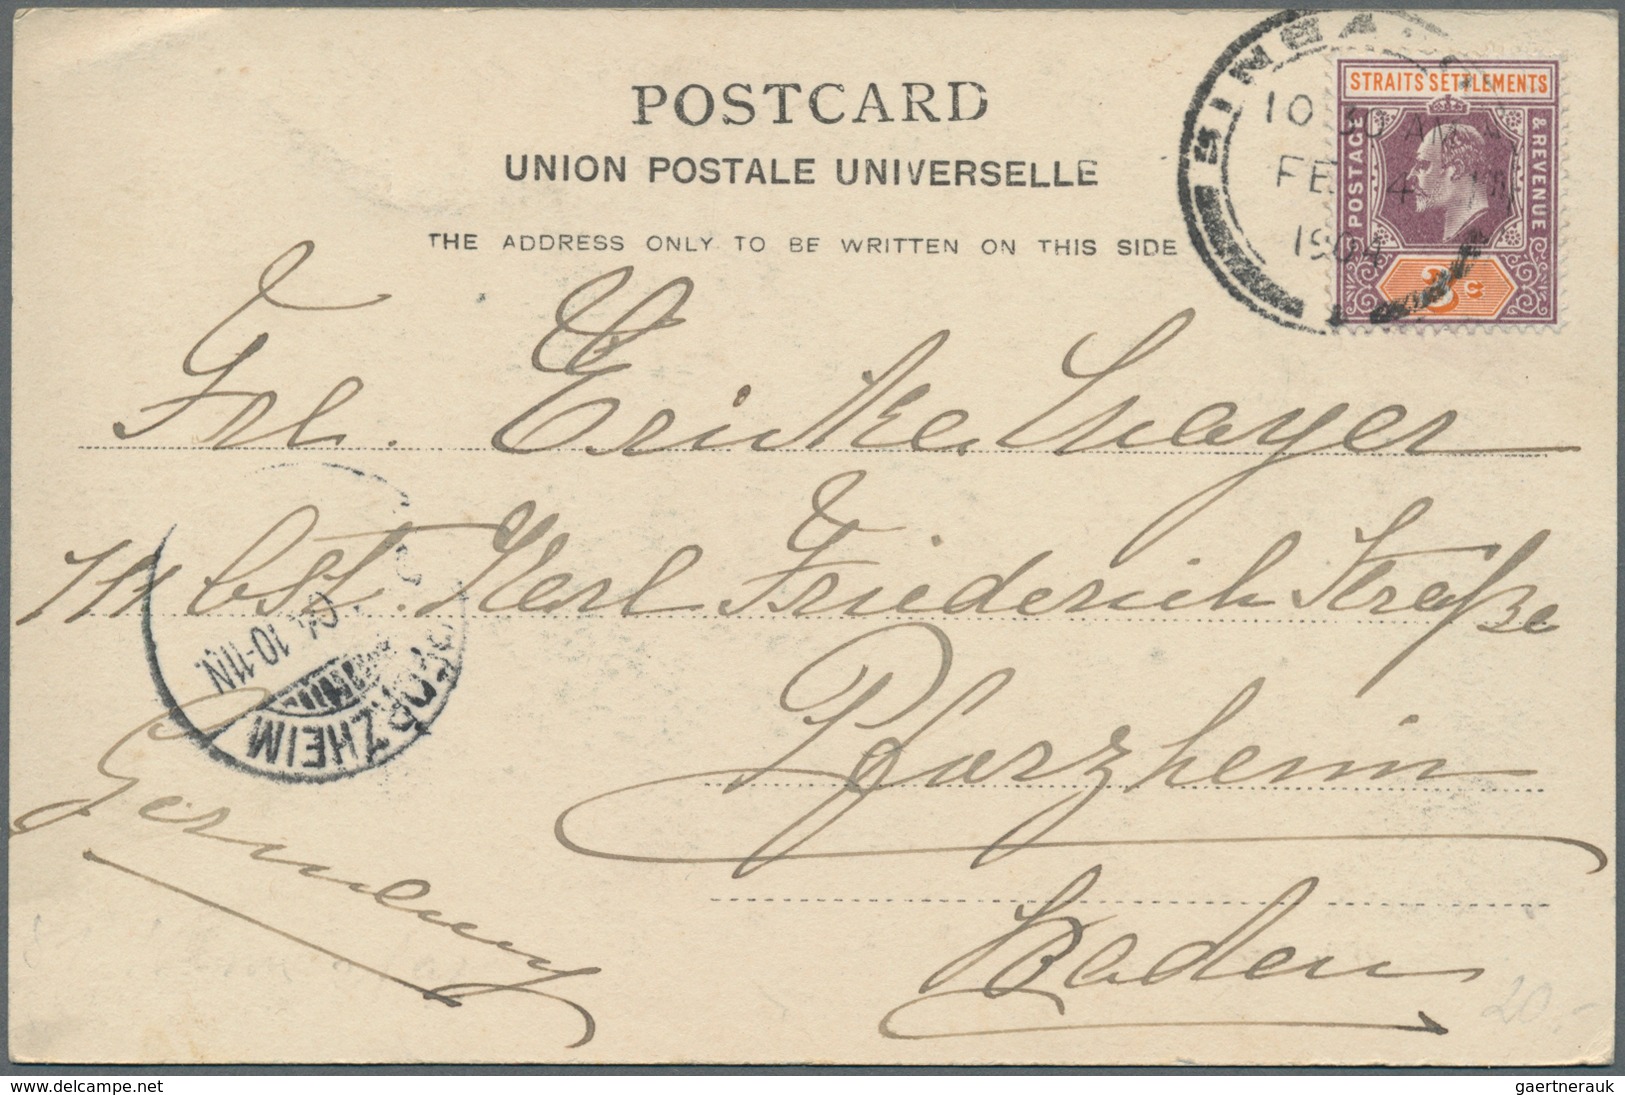 POSTCARD
UNION POSTALE UNIVERSELLE
THE ADDRESS ONLY TO BE WRITTEN ON THIS SIDE
STRAITS SETTLEMENTS
POSTAGE
& REVENUE
3c
10 30 AM
FE 4
1904
Frl. Erika Mayer
Karl Friederich Straße
Pforzheim
Baden
Germany
PFORZHEIM
04. 10-11N.
20.-
www.delcampe.net
gaertnerauk